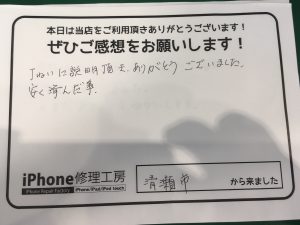 本日は当店をご利用頂きありがとうございます!
ぜひご感想をお願いします!
丁ねいに説明頂き、ありがとうございました。
安く済んだ事。
iPhone修理工房
iPhone Repair Factory
iPhone/iPad/iPod touch
清瀬市
から来ました